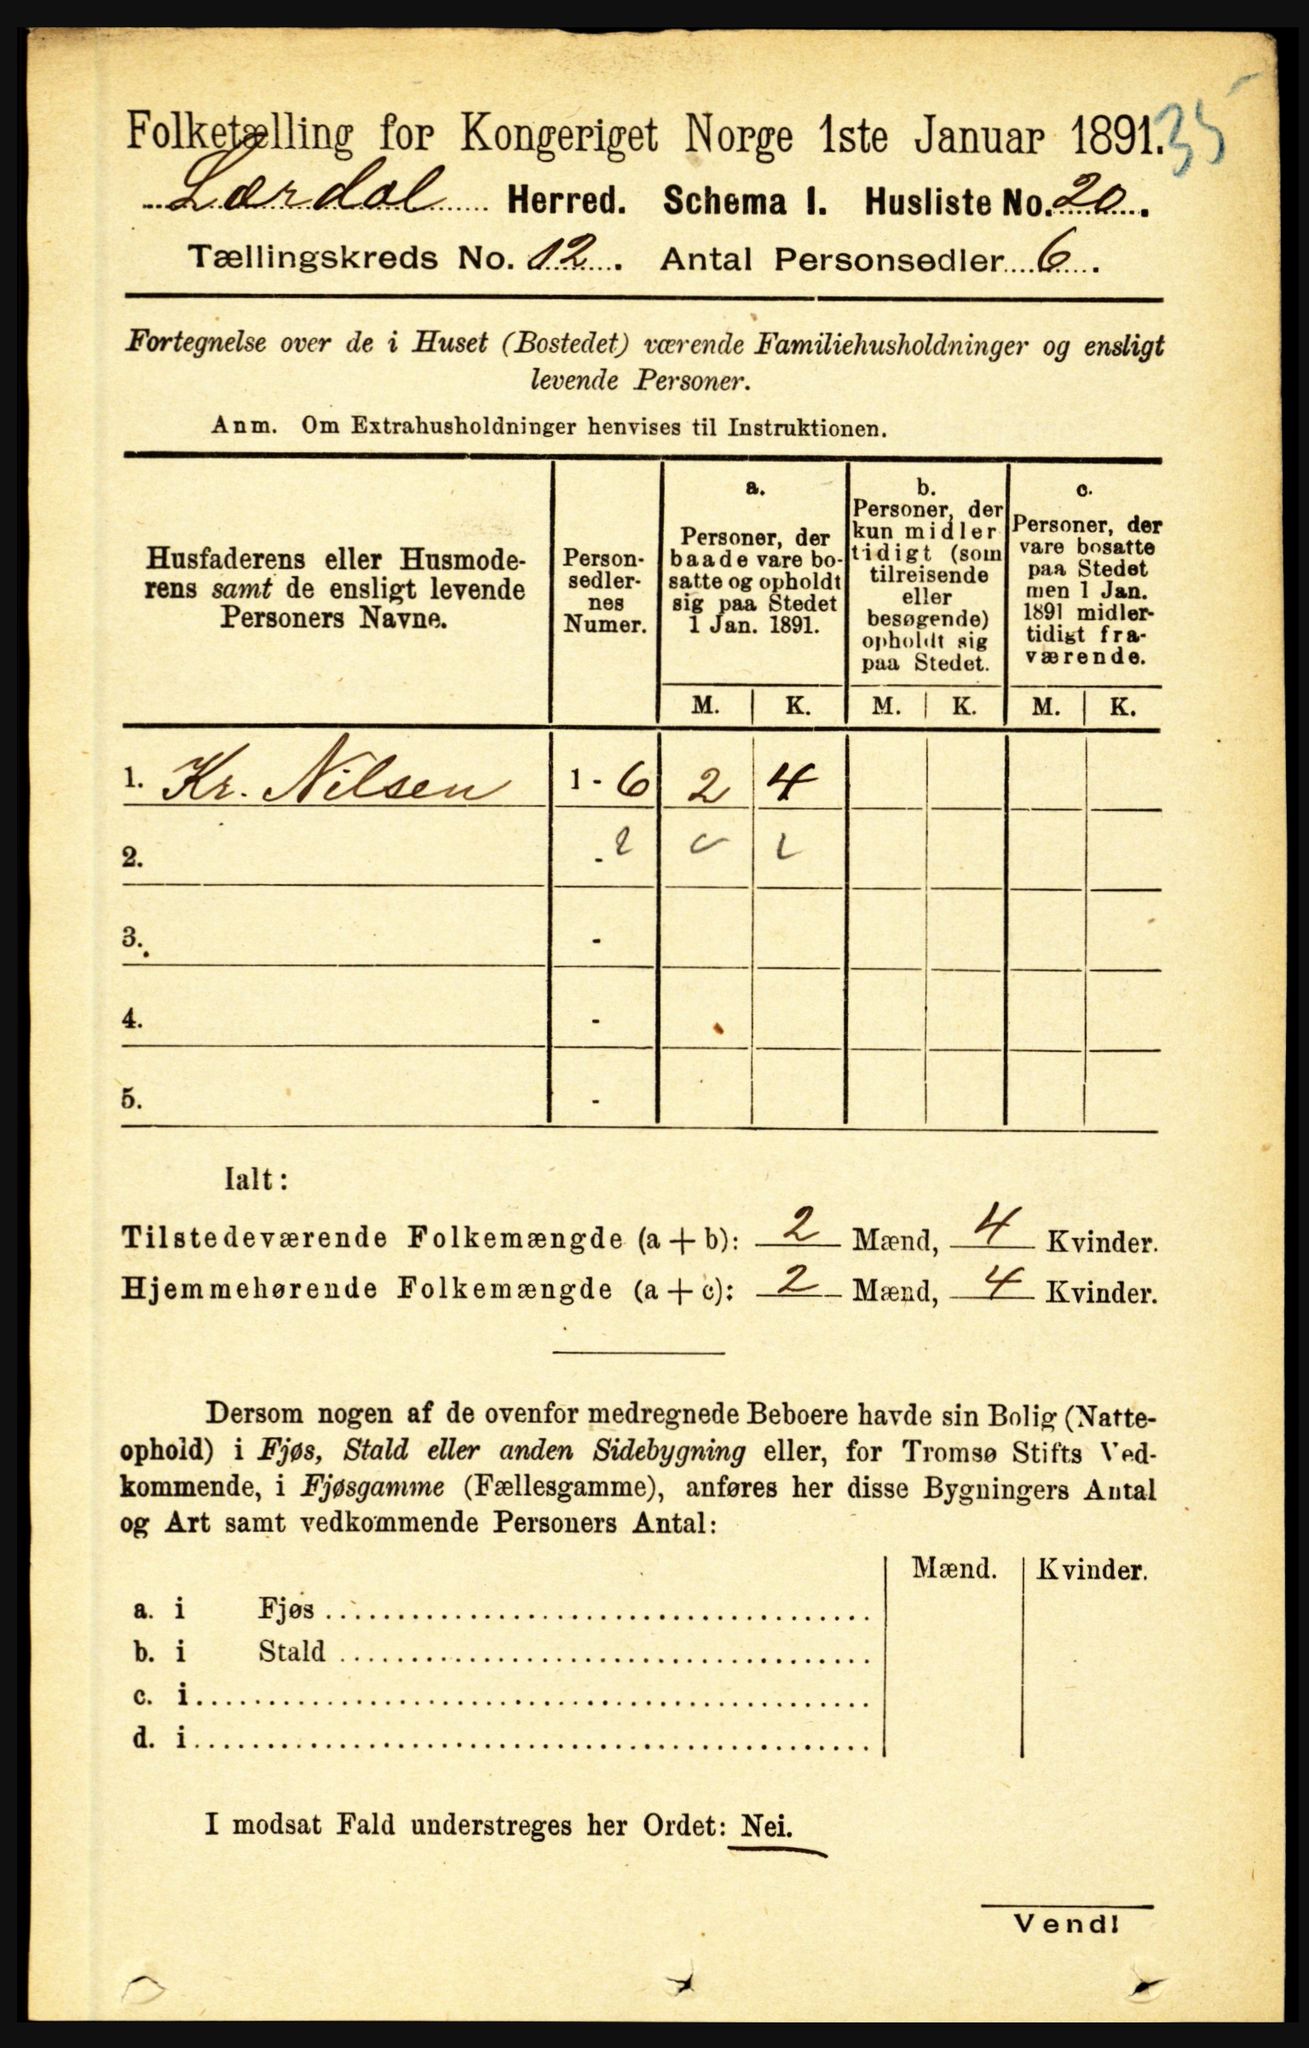 Folketælling for Kongeriget Norge 1ste Januar 1891. 35
Lærdal Herred. Schema I. Husliste No. 20.
Tællingskreds No. 12. Antal Personsedler 6.
Fortegnelse over de i Huset (Bostedet) værende Familiehusholdninger og ensligt
levende Personer.
Anm. Om Extrahusholdninger henvises til Instruktionen.
Husfaderens eller Husmode-
rens samt de ensligt levende
Personers Navne.
Person-
sedler-
nes
Numer.
a.
Personer, der
baade vare bo-
satte og opholdt
sig paa Stedet
1 Jan. 1891.
b.
Personer, der
kun midler
tidigt (som
tilreisende
eller
besøgende)
opholdt sig
paa Stedet.
c.
Personer, der
vare bosatte
paa Stedet
men 1 Jan.
1891 midler-
tidigt fra-
værende.
M. K. M. K. M. K.
1. Kr. Nilsen 1 - 6 2 4
2. -
3. -
4. -
5. -
Ialt:
Tilstedeværende Folkemængde (a + b): 2 Mænd, 4 Kvinder.
Hjemmehørende Folkemængde (a + c): 2 Mænd, 4 Kvinder.
Dersom nogen af de ovenfor medregnede Beboere havde sin Bolig (Natte-
ophold) i Fjøs, Stald eller anden Sidebygning eller, for Tromsø Stifts Ved-
kommende, i Fjøsgamme (Fællesgamme), anføres her disse Bygningers Antal
og Art samt vedkommende Personers Antal:
Mænd. Kvinder.
a. i Fjøs
b. i Stald
c. i
d. i
I modsat Fald understreges her Ordet: Nei.
Vend!